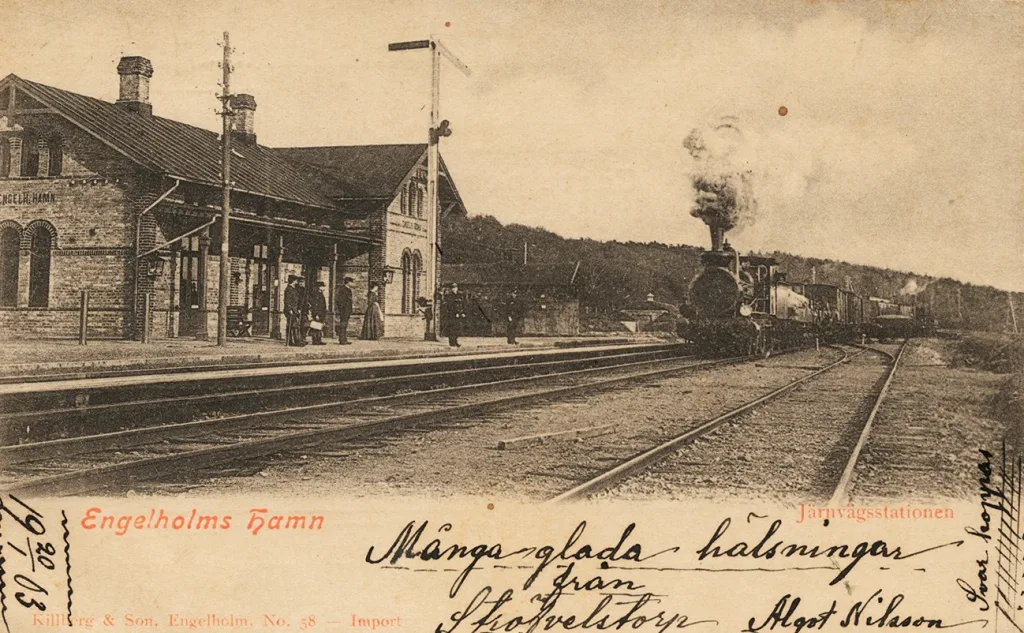 ENGELH. HAMN.
Engelholms Hamn
Järnvägsstationen
Många glada hälsningar
från
Skofvelstorp Algot Nilsson
Svar hoppas
19 20/1 03
Killberg & Son, Engelholm. No. 58 – Import